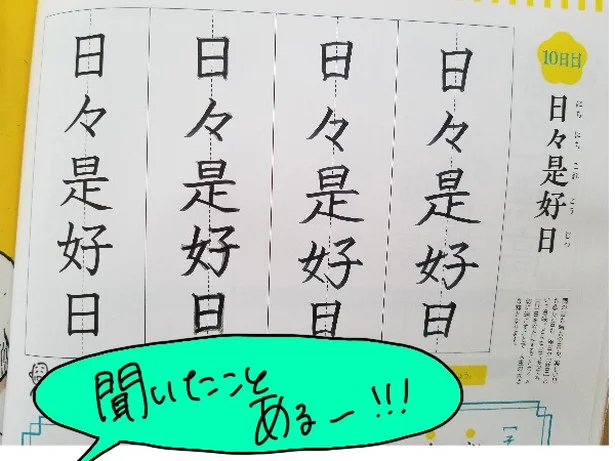 10日目
日々是好日
にちにちこれこうじつ
日々是好日
日々是好日
日々是好日
日々是好日
聞いたこと
あるー!!!